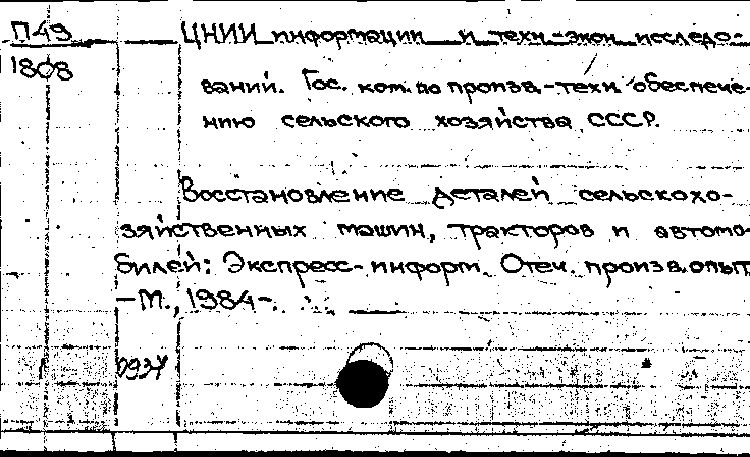 П49 ЦНИИ информации и техн.-экон. исследо-
1808
ваний. Гос. ком. по произв.-техн. обеспече-
нию сельского хозяйства СССР.
Восстановление деталей сельскохо-
зяйственных машин, тракторов и автомо-
билей: Экспресс-информ. Отеч. произв. опыт
-М., 1984-.
0937